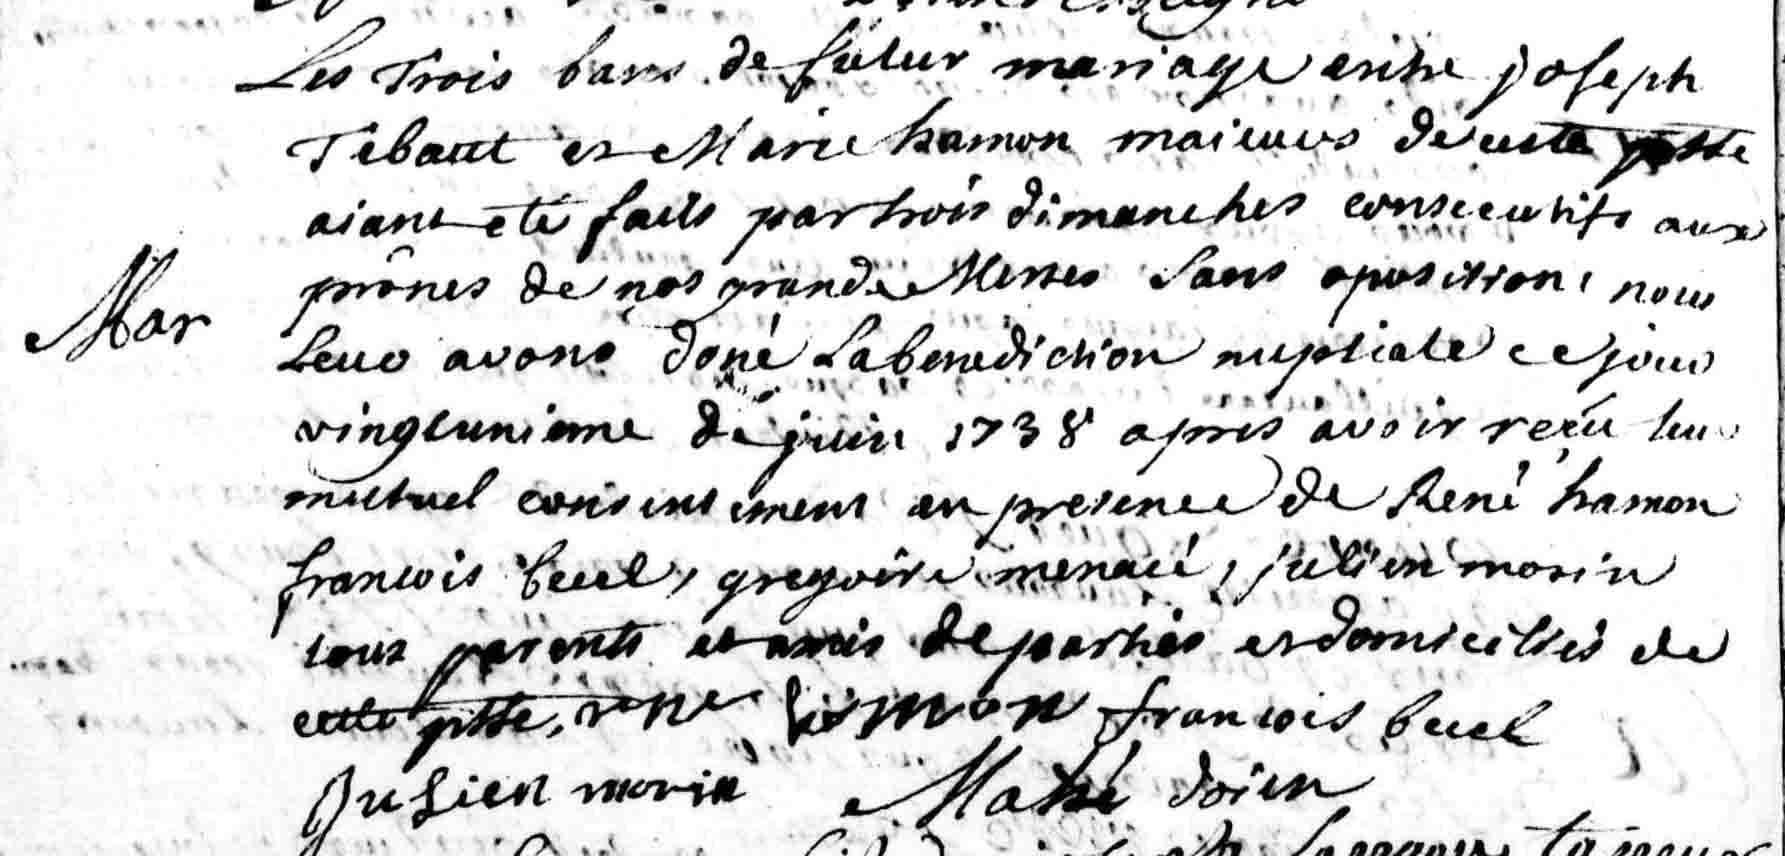 Les Trois bans de futur mariage entre joseph
Tebaut et Marie hamon maieurs de cette psse
aiant eté faits par trois dimanches consecutifs aux
prônes de nos grande Messes sans oposition, nous
Leur avons doné La benediction nuptiale ce jour
Mar
vingtunieme de juin 1738 apres avoir reçu leur
mutuel consentement en presence de René hamon
francois becel, gregoire menacé, julien morin
tous parents et amis de parties et domiciliés de
cette psse, rene hamon francois becel
Julien morin Mahé doien